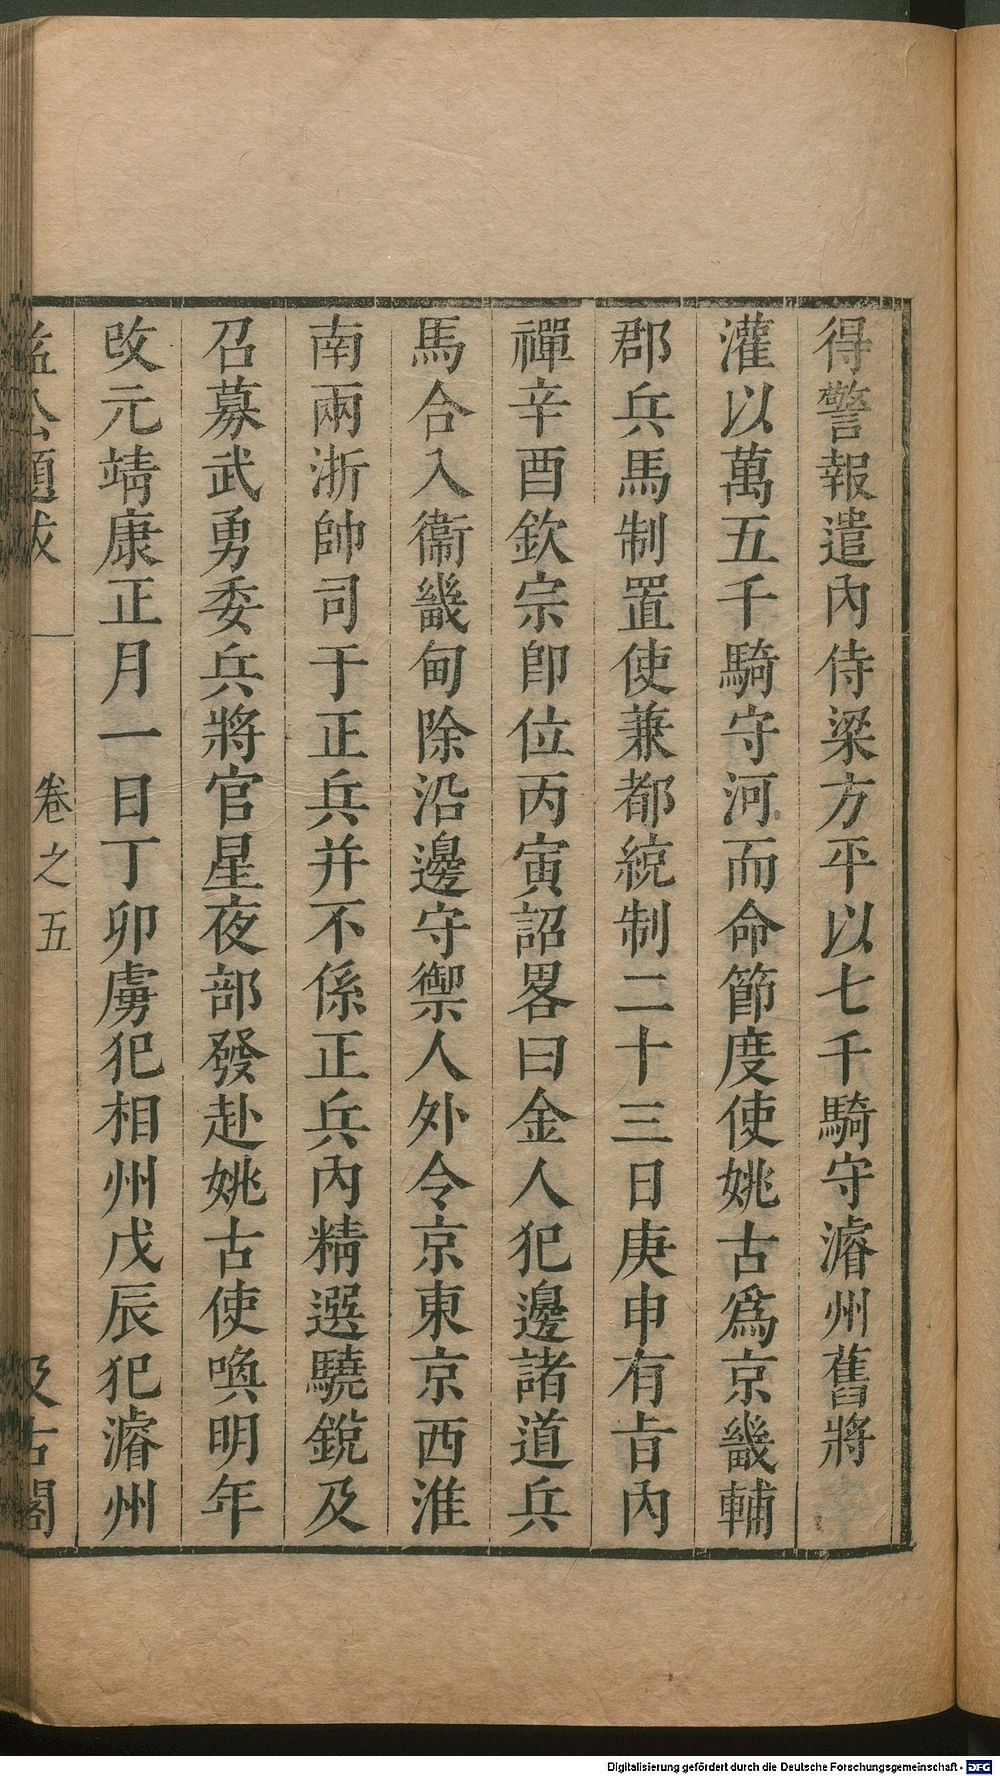 得警報遣內侍梁方平以七千騎守濬州舊將
灌以萬五千騎守河而命節度使姚古爲京畿輔
郡兵馬制置使兼都統制二十三日庚申有旨內
禪辛酉欽宗卽位丙寅詔畧曰金人犯邊諸道兵
馬合入衞畿甸除沿邊守禦人外令京東京西淮
南兩浙帥司于正兵并不係正兵內精選驍銳及
召募武勇委兵將官星夜部發赴姚古使喚明年
改元靖康正月一日丁卯虜犯相州戊辰犯濬州
益公題跋 卷之五 汲古閣
Digitalisierung gefördert durch die Deutsche Forschungsgemeinschaft - DFG